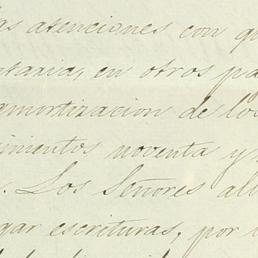 las atenciones con qu
ntaria, en otros pa
amortizacion de los
imientos noventa y n
. Los Señores alb
gar escrituras, por